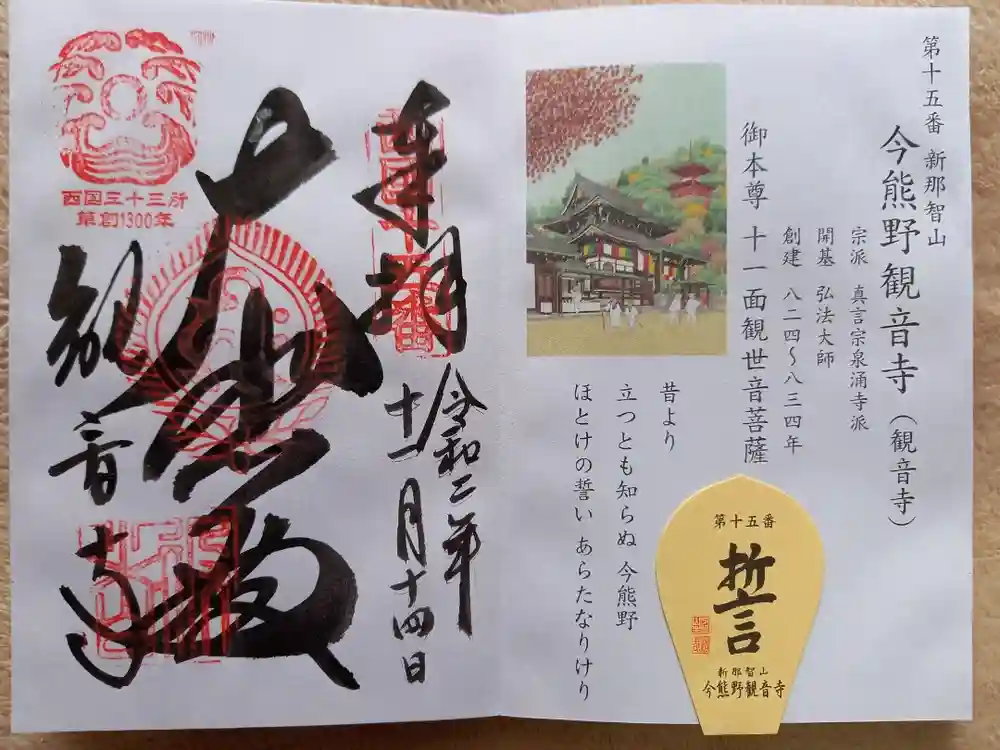 第十五番 新那智山
今熊野観音寺（観音寺）
宗派 真言宗泉涌寺派
開基 弘法大師
創建 八二四〜八三四年
御本尊 十一面観世音菩薩
昔より
立つとも知らぬ 今熊野
ほとけの誓い あらたなりけり
第十五番
誓
新那智山
今熊野観音寺
奉拝
令和二年
十一月十四日
大悲殿
観音寺
西国三十三所
草創1300年